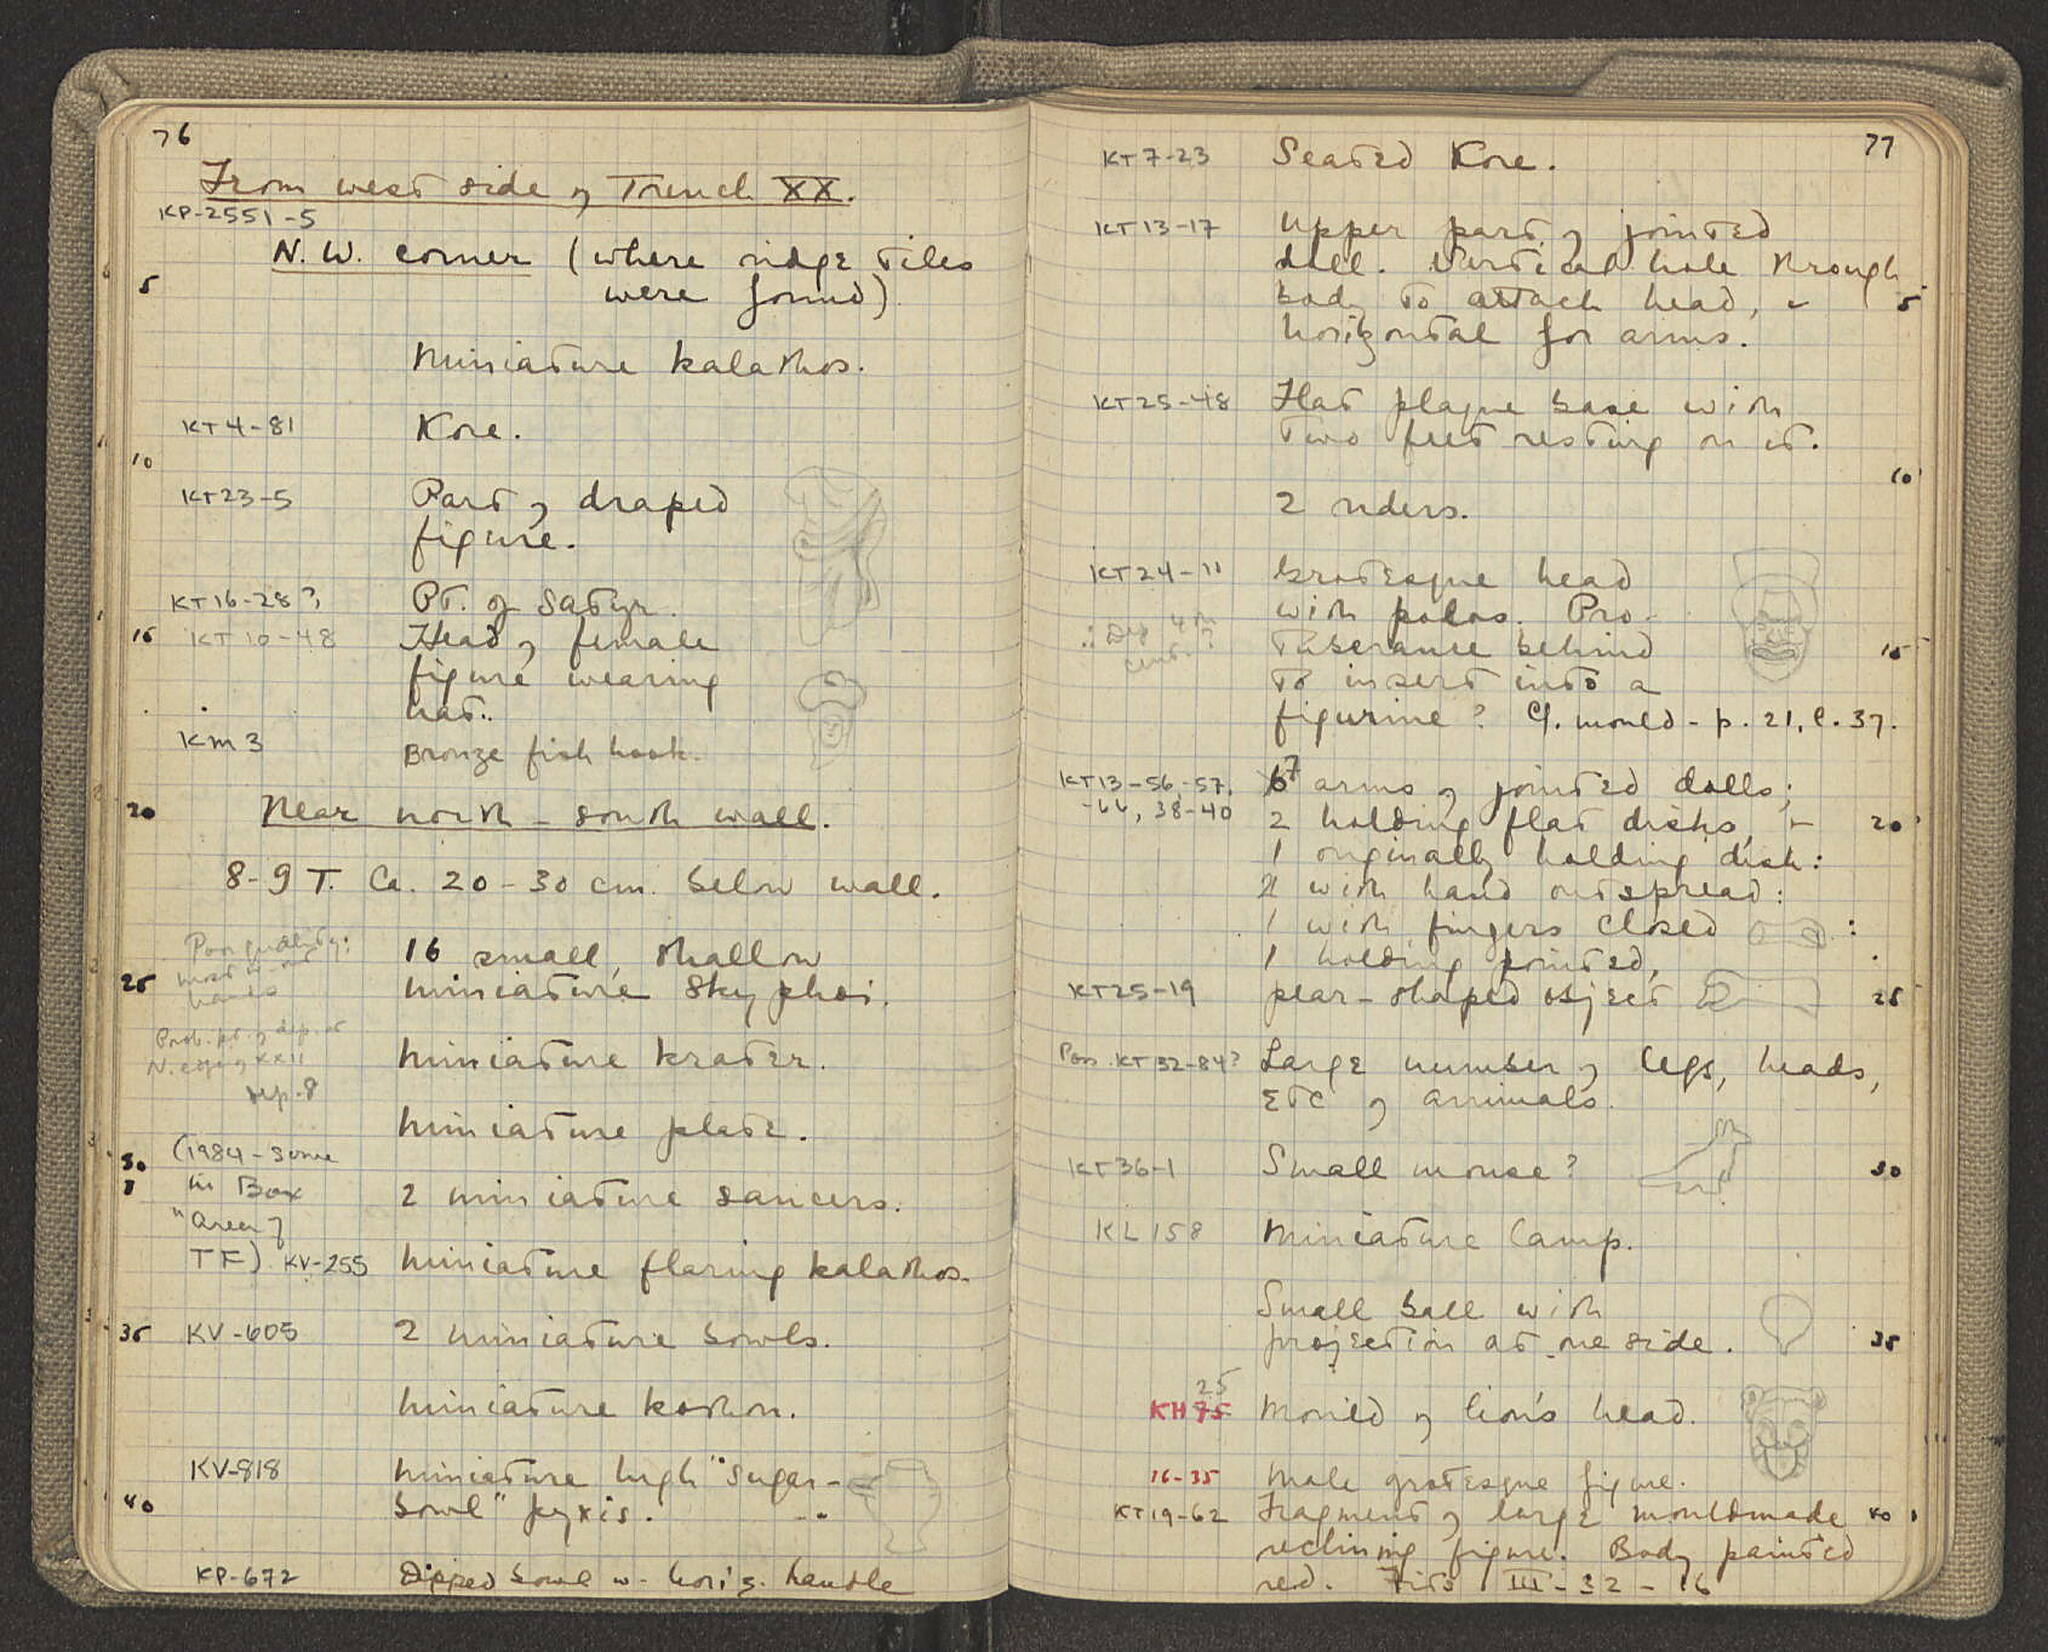 76
From west side of Trench XX.
KP-2551-5
N.W. corner (where ridge tiles
5 were found)
Miniature kalathos.
KT4-81 Kore.
10
KT23-5 Part of draped
figure.
KT16-28? Pt. of Satyr.
15 KT10-48 Head of female
figure wearing
hat.
KM3 Bronze fish hook.
20 Near north-south wall.
8-9 T. Ca. 20-30 cm. below wall.
Poor quality: 16 small, shallow
25 most w-out miniature skyphoi.
handles
Prob. pt. of dep. at
N. edge of XXII miniature krater.
dep. 8
miniature plate.
(1984 - some
30
in Box 2 miniature saucers.
"Area of
TF) KV-255 miniature flaring kalathos.
35 KV-605 2 miniature bowls.
miniature kothon.
KV-818 miniature high "sugar-
40 bowl" pyxis.
KP-672 Dipped bowl w. horiz. handle
77
KT7-23 Seated Kore.
KT13-17 Upper part of jointed
doll. Vertical hole through
body to attach head, & 5
horizontal for arms.
KT25-48 Flat plaque base with
two feet resting on it.
10
2 riders.
KT24-11 Grotesque head
with polos. Pro-
∴ Dep 4th tuberance behind 15
cent.? to insert into a
figurine? Cf. mould - p. 21, l. 37.
KT13-56,-57, 6 7 arms of jointed dolls;
-66, 38-40 2 holding flat disks, & 20
1 originally holding disk:
2 with hand outspread:
1 with fingers closed :
1 holding pointed,
KT25-19 pear-shaped object 25
Poss. KT32-84? Large number of legs, heads,
etc of animals.
KT36-1 Small mouse? 30
KL158 Miniature lamp.
Small ball with
projection at one side. 35
25
KH 75 Mould of lion's head.
16-35 Male grotesque figure.
KT19-62 Fragment of large mouldmade 40
reclining figure. Body painted
red. Fits III-32-16